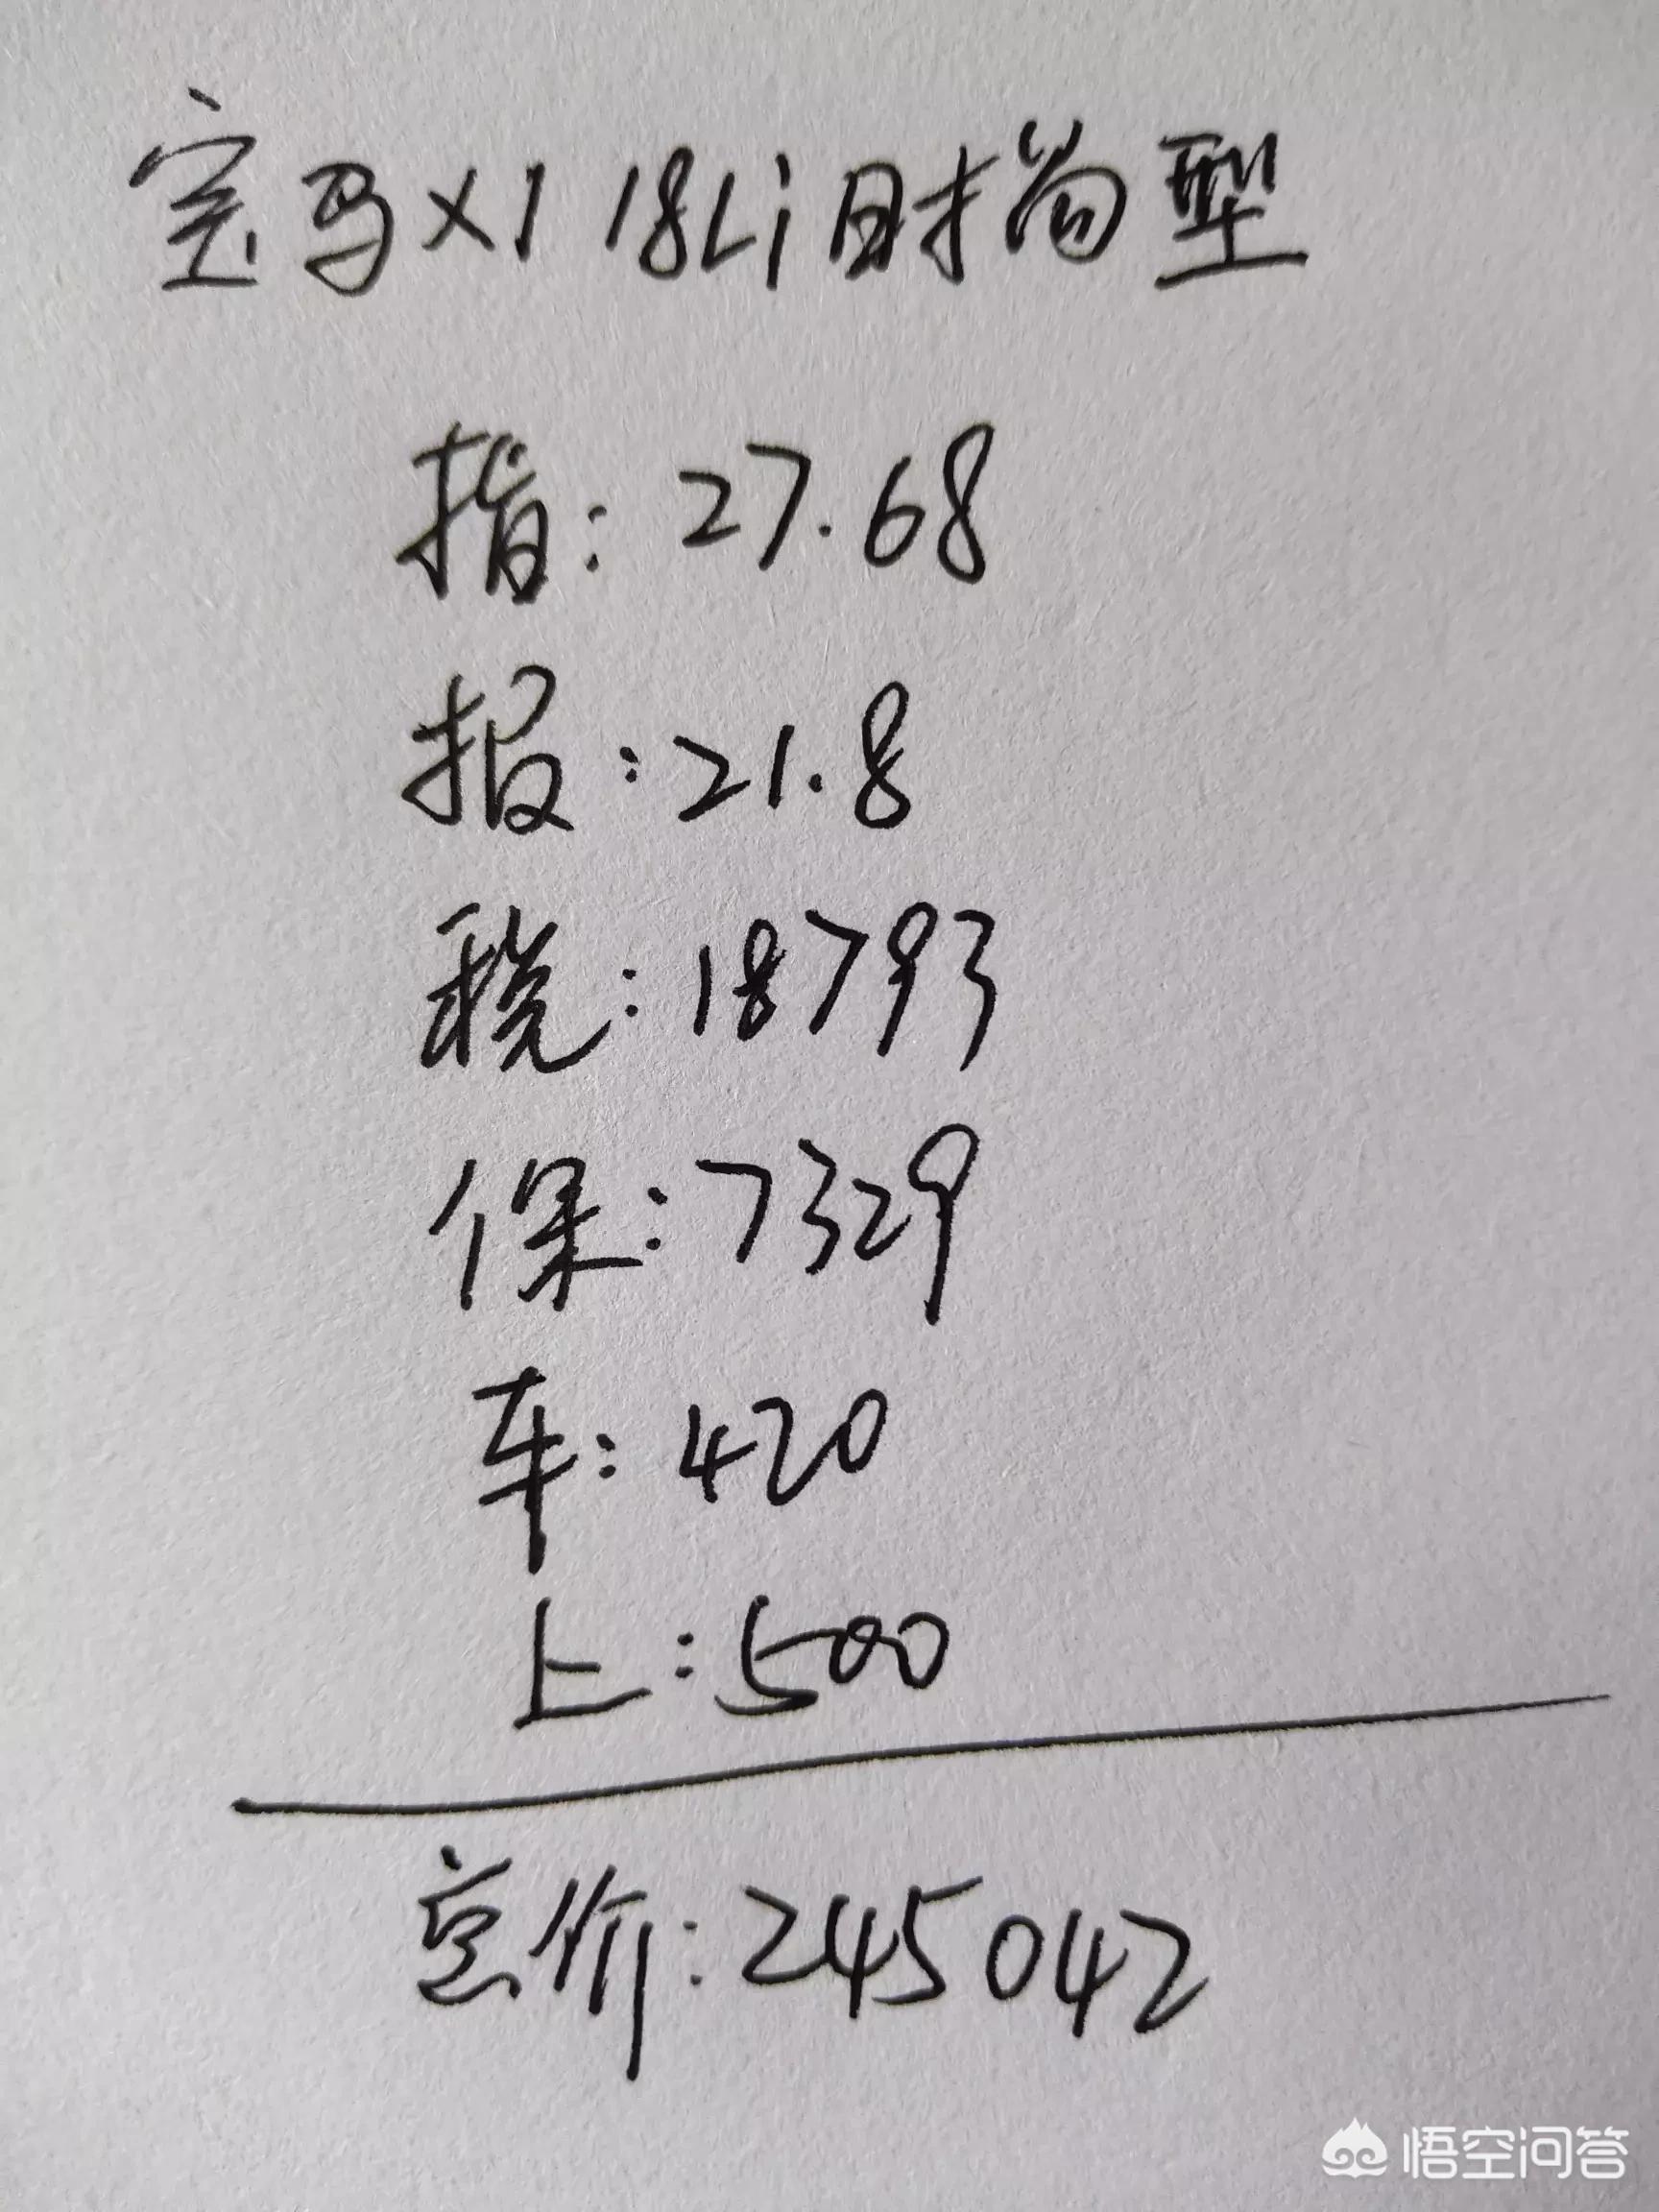 宝马X1 18Li时尚型
指：27.68
报：21.8
税：18793
保：7329
车：420
上：500
总价：245042
悟空问答